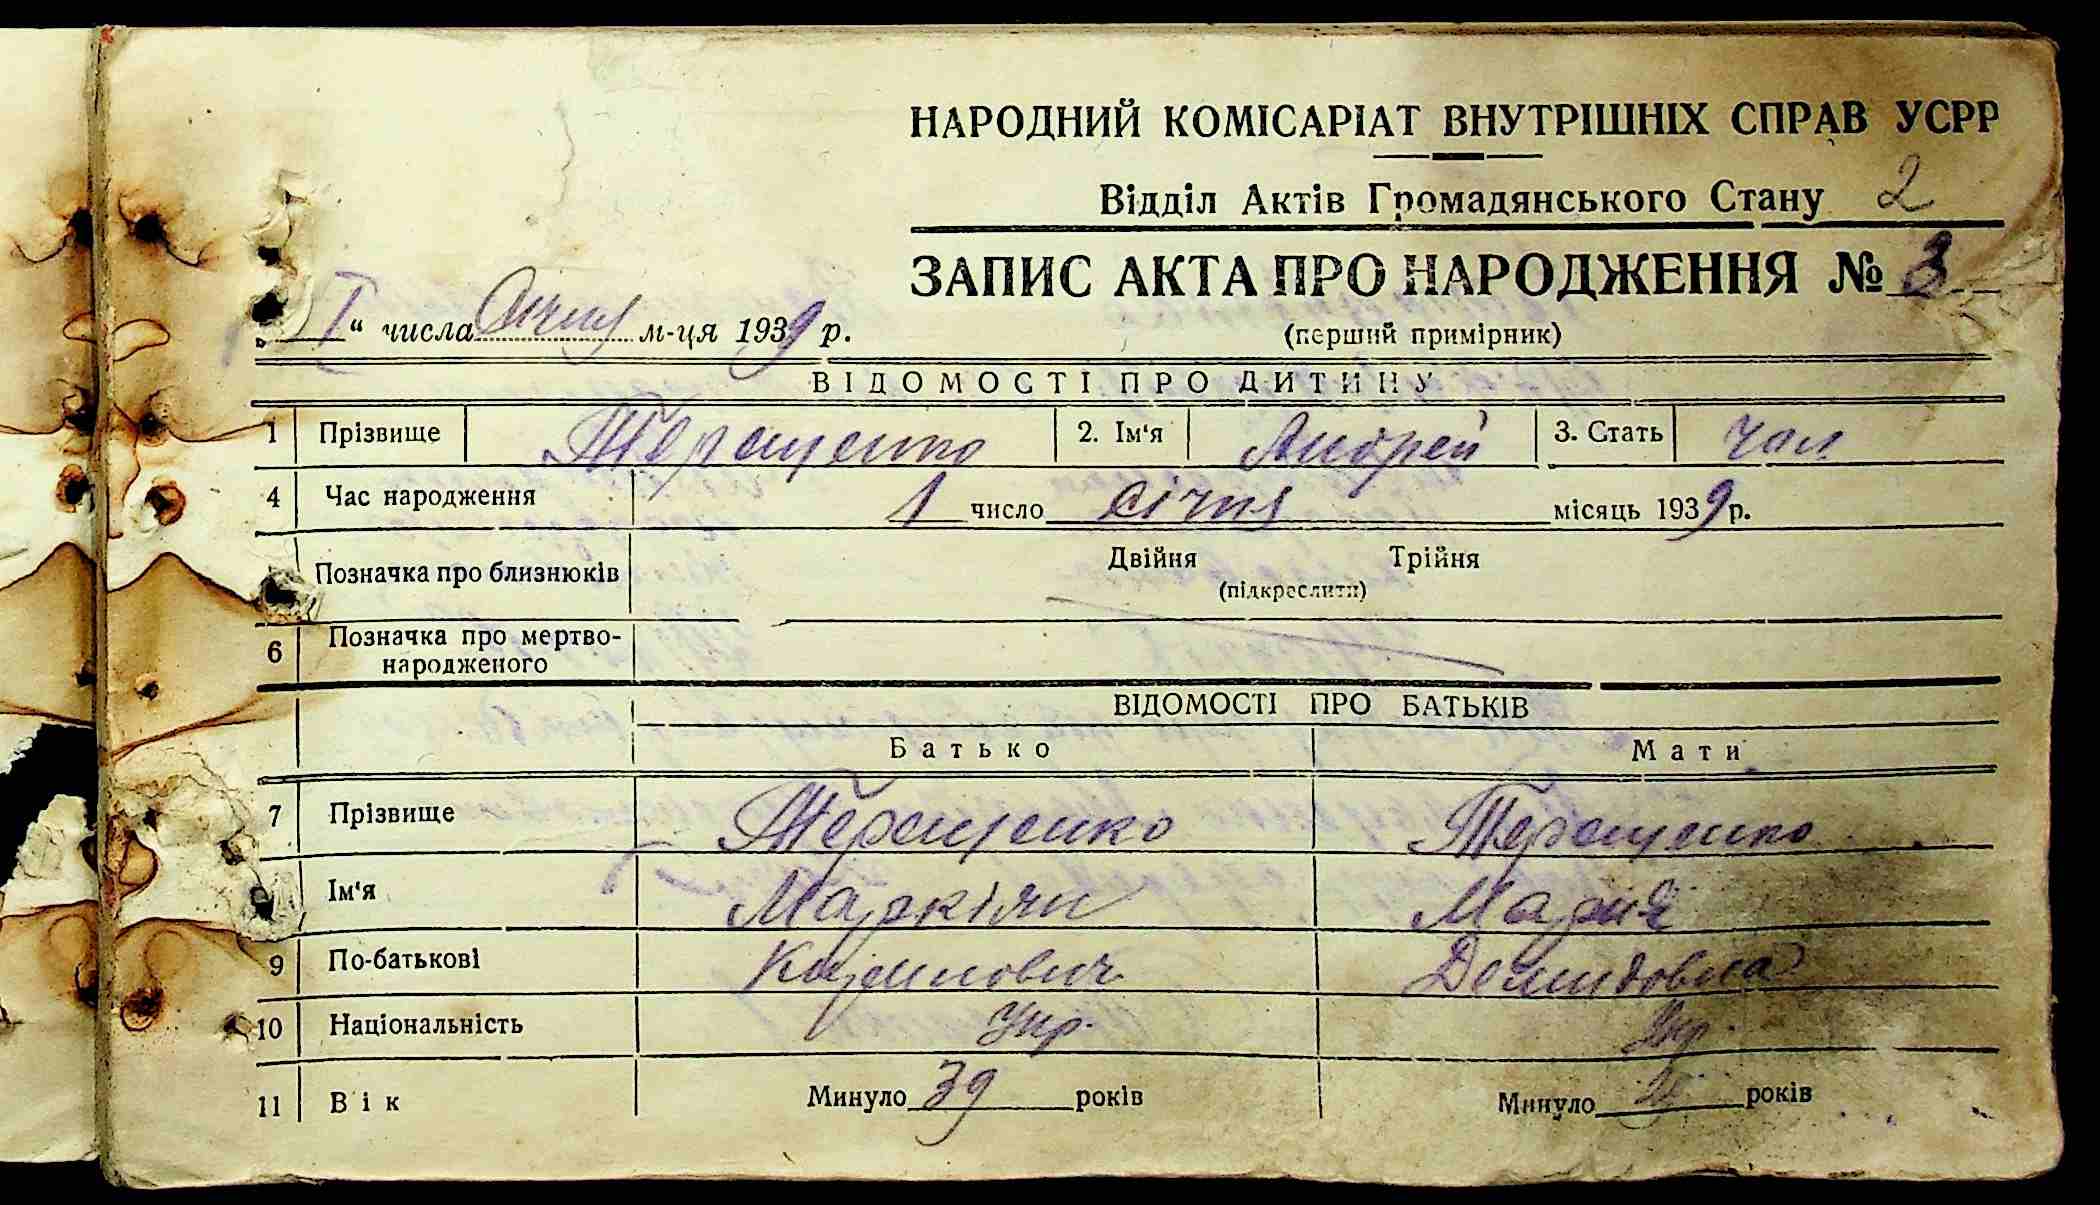 НАРОДНИЙ КОМІСАРІАТ ВНУТРІШНІХ СПРАВ УСРР
Відділ Актів Громадянського Стану 2
ЗАПИС АКТА ПРО НАРОДЖЕННЯ № 3
„ I “ числа Січня м-ця 1939 р. (перший примірник)
ВІДОМОСТІ ПРО ДИТИНУ
1 Прізвище Терещенко 2. Ім‘я Андрей 3. Стать чол
4 Час народження 1 число січня місяць 1939 р.
Позначка про близнюків Двійня Трійня
(підкреслити)
6 Позначка про мертво-
народженого
ВІДОМОСТІ ПРО БАТЬКІВ
Батько Мати
7 Прізвище Терещенко Терещенко
Ім‘я Маркіян Мария
9 По-батькові Демидовна
10 Національність Укр. Укр.
11 Вік Минуло 39 років Минуло років